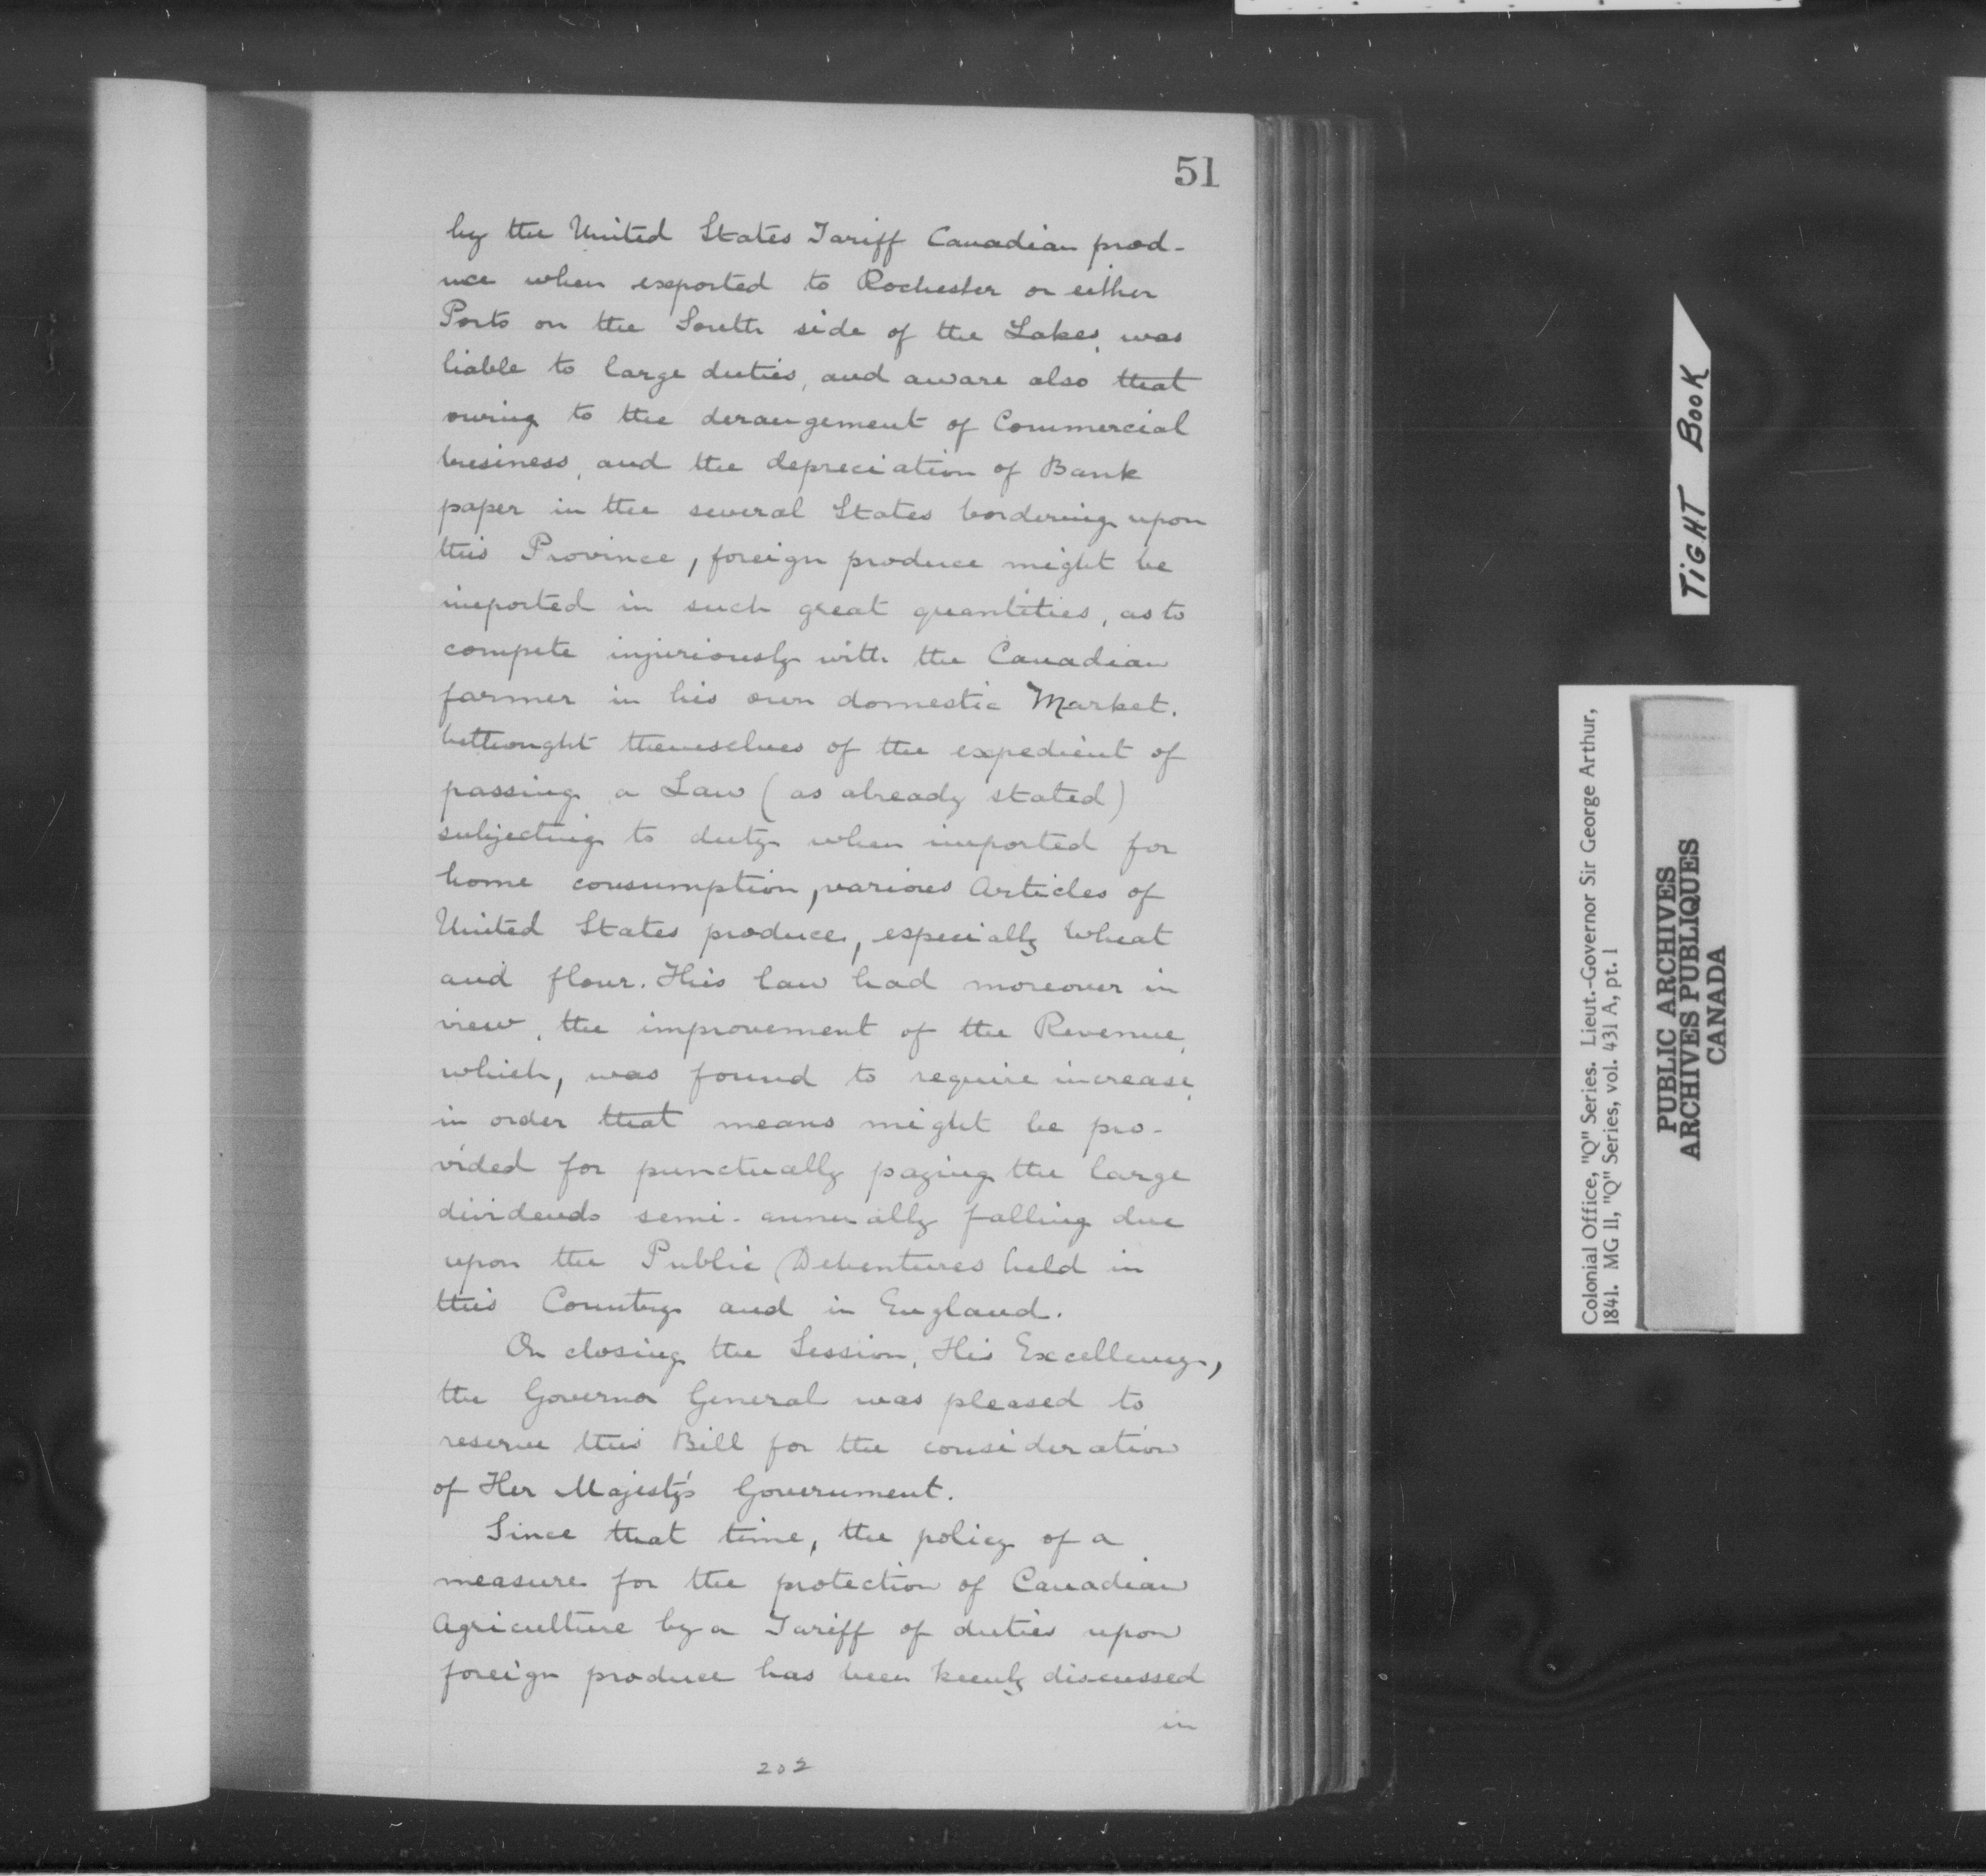 51
by the United States Tariff Canadian prod-
uce when exported to Rochester or either
Ports on the South side of the Lakes, was
liable to large duties, and aware also that
owing to the derangement of Commercial
business, and the depreciation of Bank
paper in the several States bordering upon
this Province, foreign produce might be
imported in such great quantities, as to
compete injuriously with the Canadian
farmer in his own domestic Market.
bethought themselves of the expedient of
passing a Law (as already stated)
subjecting to duty when imported for
home consumption, various Articles of
United States produce, especially Wheat
and flour. This law had moreover in
view, the improvement of the Revenue,
which, was found to require increase,
in order that means might be pro-
vided for punctually paying the large
dividends semi-annually falling due
upon the Public Debentures held in
this Country and in England.
On closing the Session, His Excellency,
the Governor General was pleased to
reserve this Bill for the consideration
of Her Majesty's Government.
Since that time, the policy of a
measure for the protection of Canadian
Agriculture by a Tariff of duties upon
foreign produce has been keenly discussed
in
202
TIGHT BOOK
Colonial Office, "Q" Series. Lieut.-Governor Sir George Arthur,
1841. MG 11, "Q" Series, vol. 431 A, pt. 1
PUBLIC ARCHIVES
ARCHIVES PUBLIQUES
CANADA